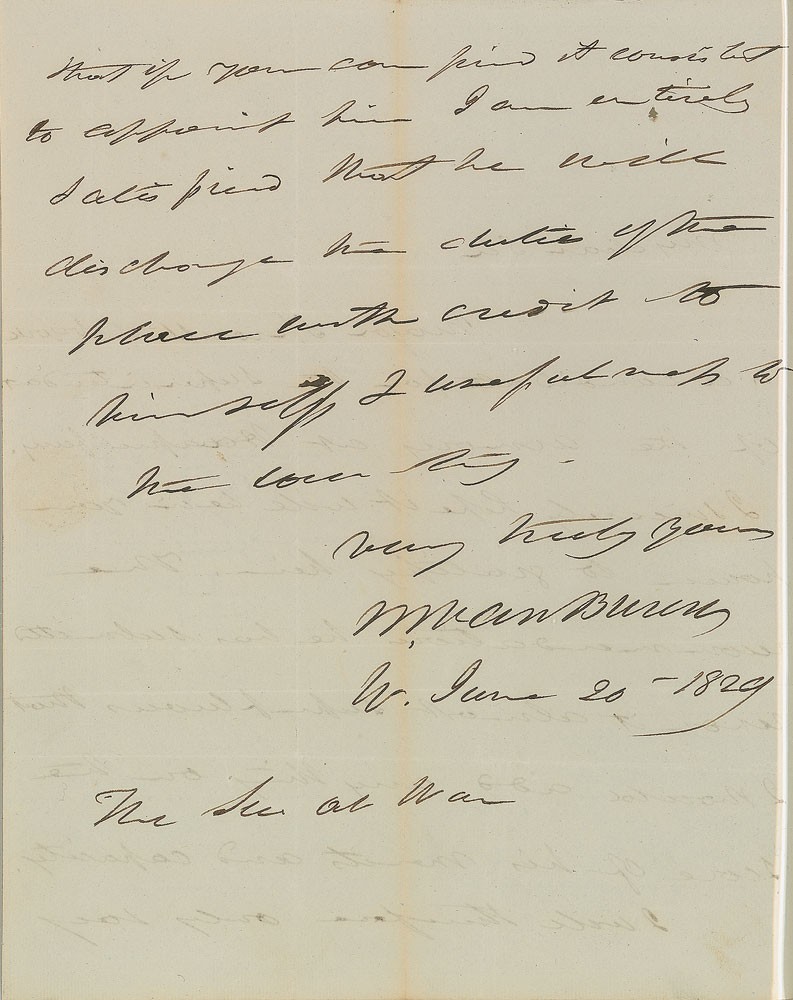 that if you can find it consistent
to appoint him I am entirely
satisfied that he will
discharge the duties of the
place with credit to
himself & usefulness to
the country -
very truly yours
M. Van Buren
W. June 20 - 1829
The Sec at War